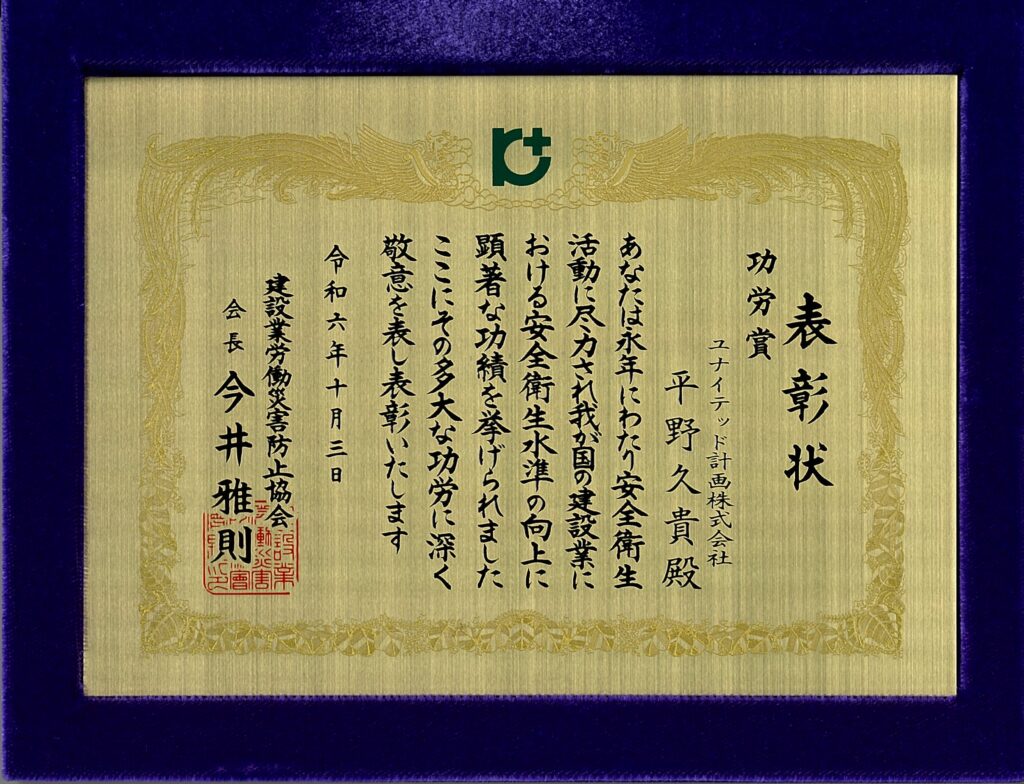 表彰状
功労賞
ユナイテッド計画株式会社
平野久貴殿
あなたは永年にわたり安全衛生
活動に尽力され我が国の建設業に
おける安全衛生水準の向上に
顕著な功績を挙げられました
ここにその多大な功労に深く
敬意を表し表彰いたします
令和六年十月三日
建設業労働災害防止協会
会長 今井雅則